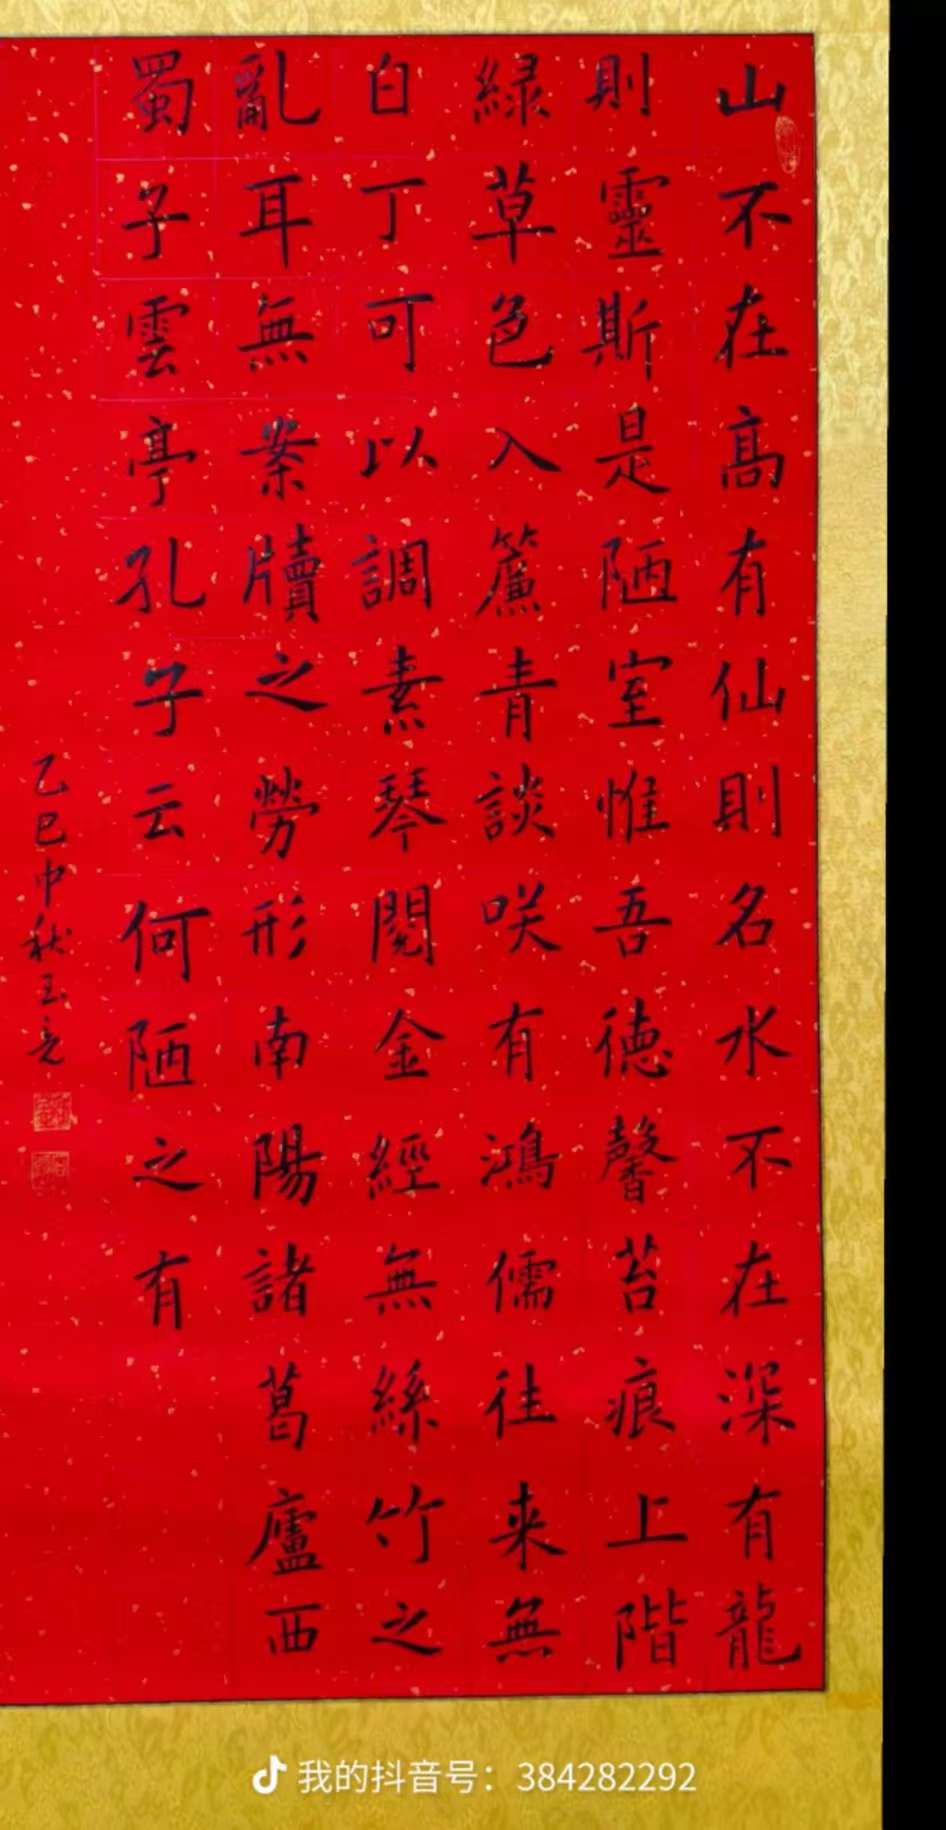 山不在髙有仙則名水不在深有龍
則靈斯是陋室惟吾徳馨苔痕上階
緑草色入簾青談咲有鴻儒往来無
白丁可以調素琴閲金經無絲竹之
亂耳無案牘之勞形南陽諸葛廬西
蜀子雲亭孔子云何陋之有
乙巳中秋
我的抖音号：384282292